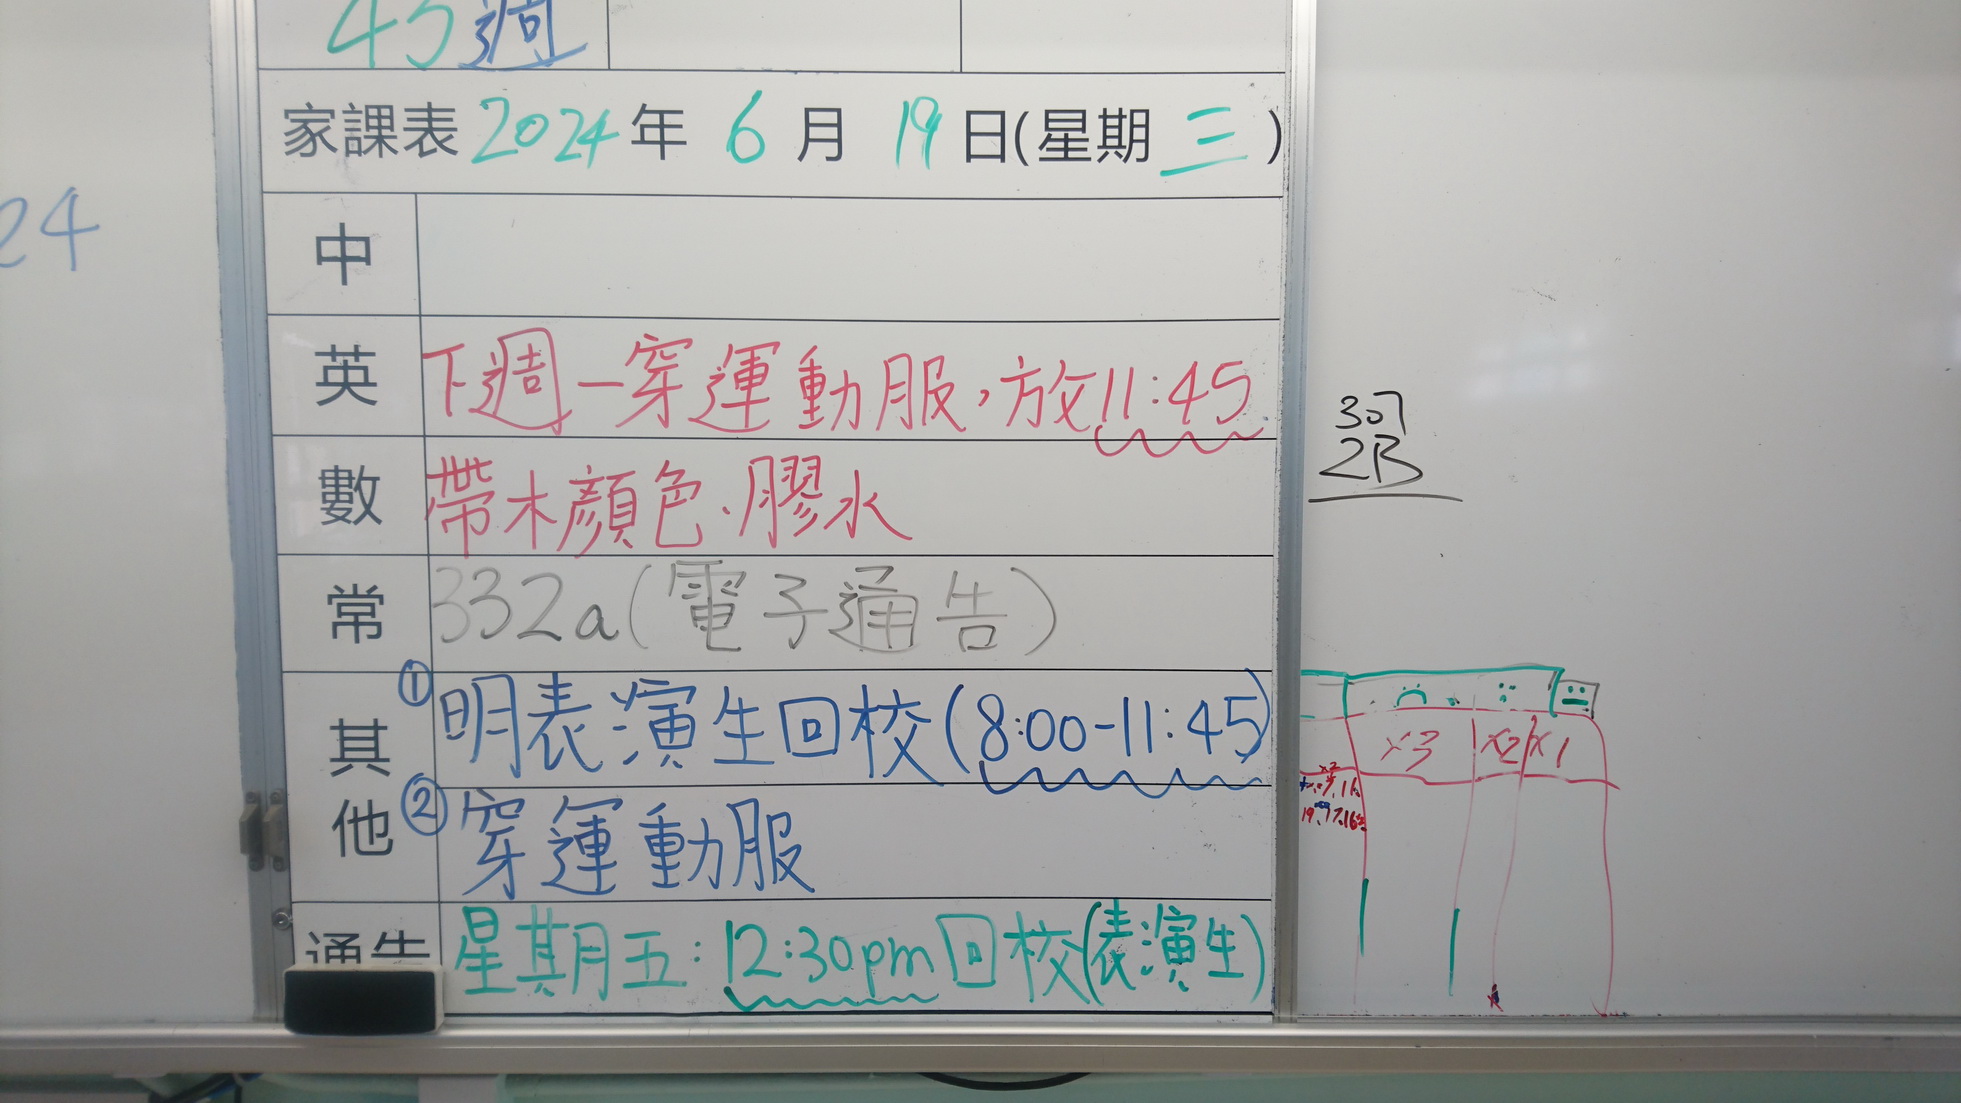 45週
家課表 2024 年 6 月 19 日(星期 三)
24
中
英 下週一穿運動服,放11:45
數 帶木顏色、膠水
常 332a(電子通告)
其他 ① 明表演生回校(8:00-11:45)
② 穿運動服
通告 星期五:12:30pm回校(表演生)
307
2B
x3 x2 x1